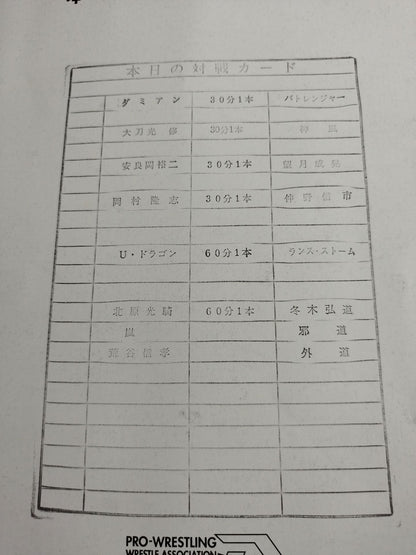 本日の対戦カード
ダミアン 30分1本 パトレンジャー
大刀光 修 30分1本 神風
安良岡裕二 30分1本 望月成晃
岡村隆志 30分1本 伴野信市
U・ドラゴン 60分1本 ランス・ストーム
北原光騎 60分1本 冬木弘道
嵐 邪道
荒谷信孝 外道
PRO-WRESTLING
WRESTLE ASSOCIATION